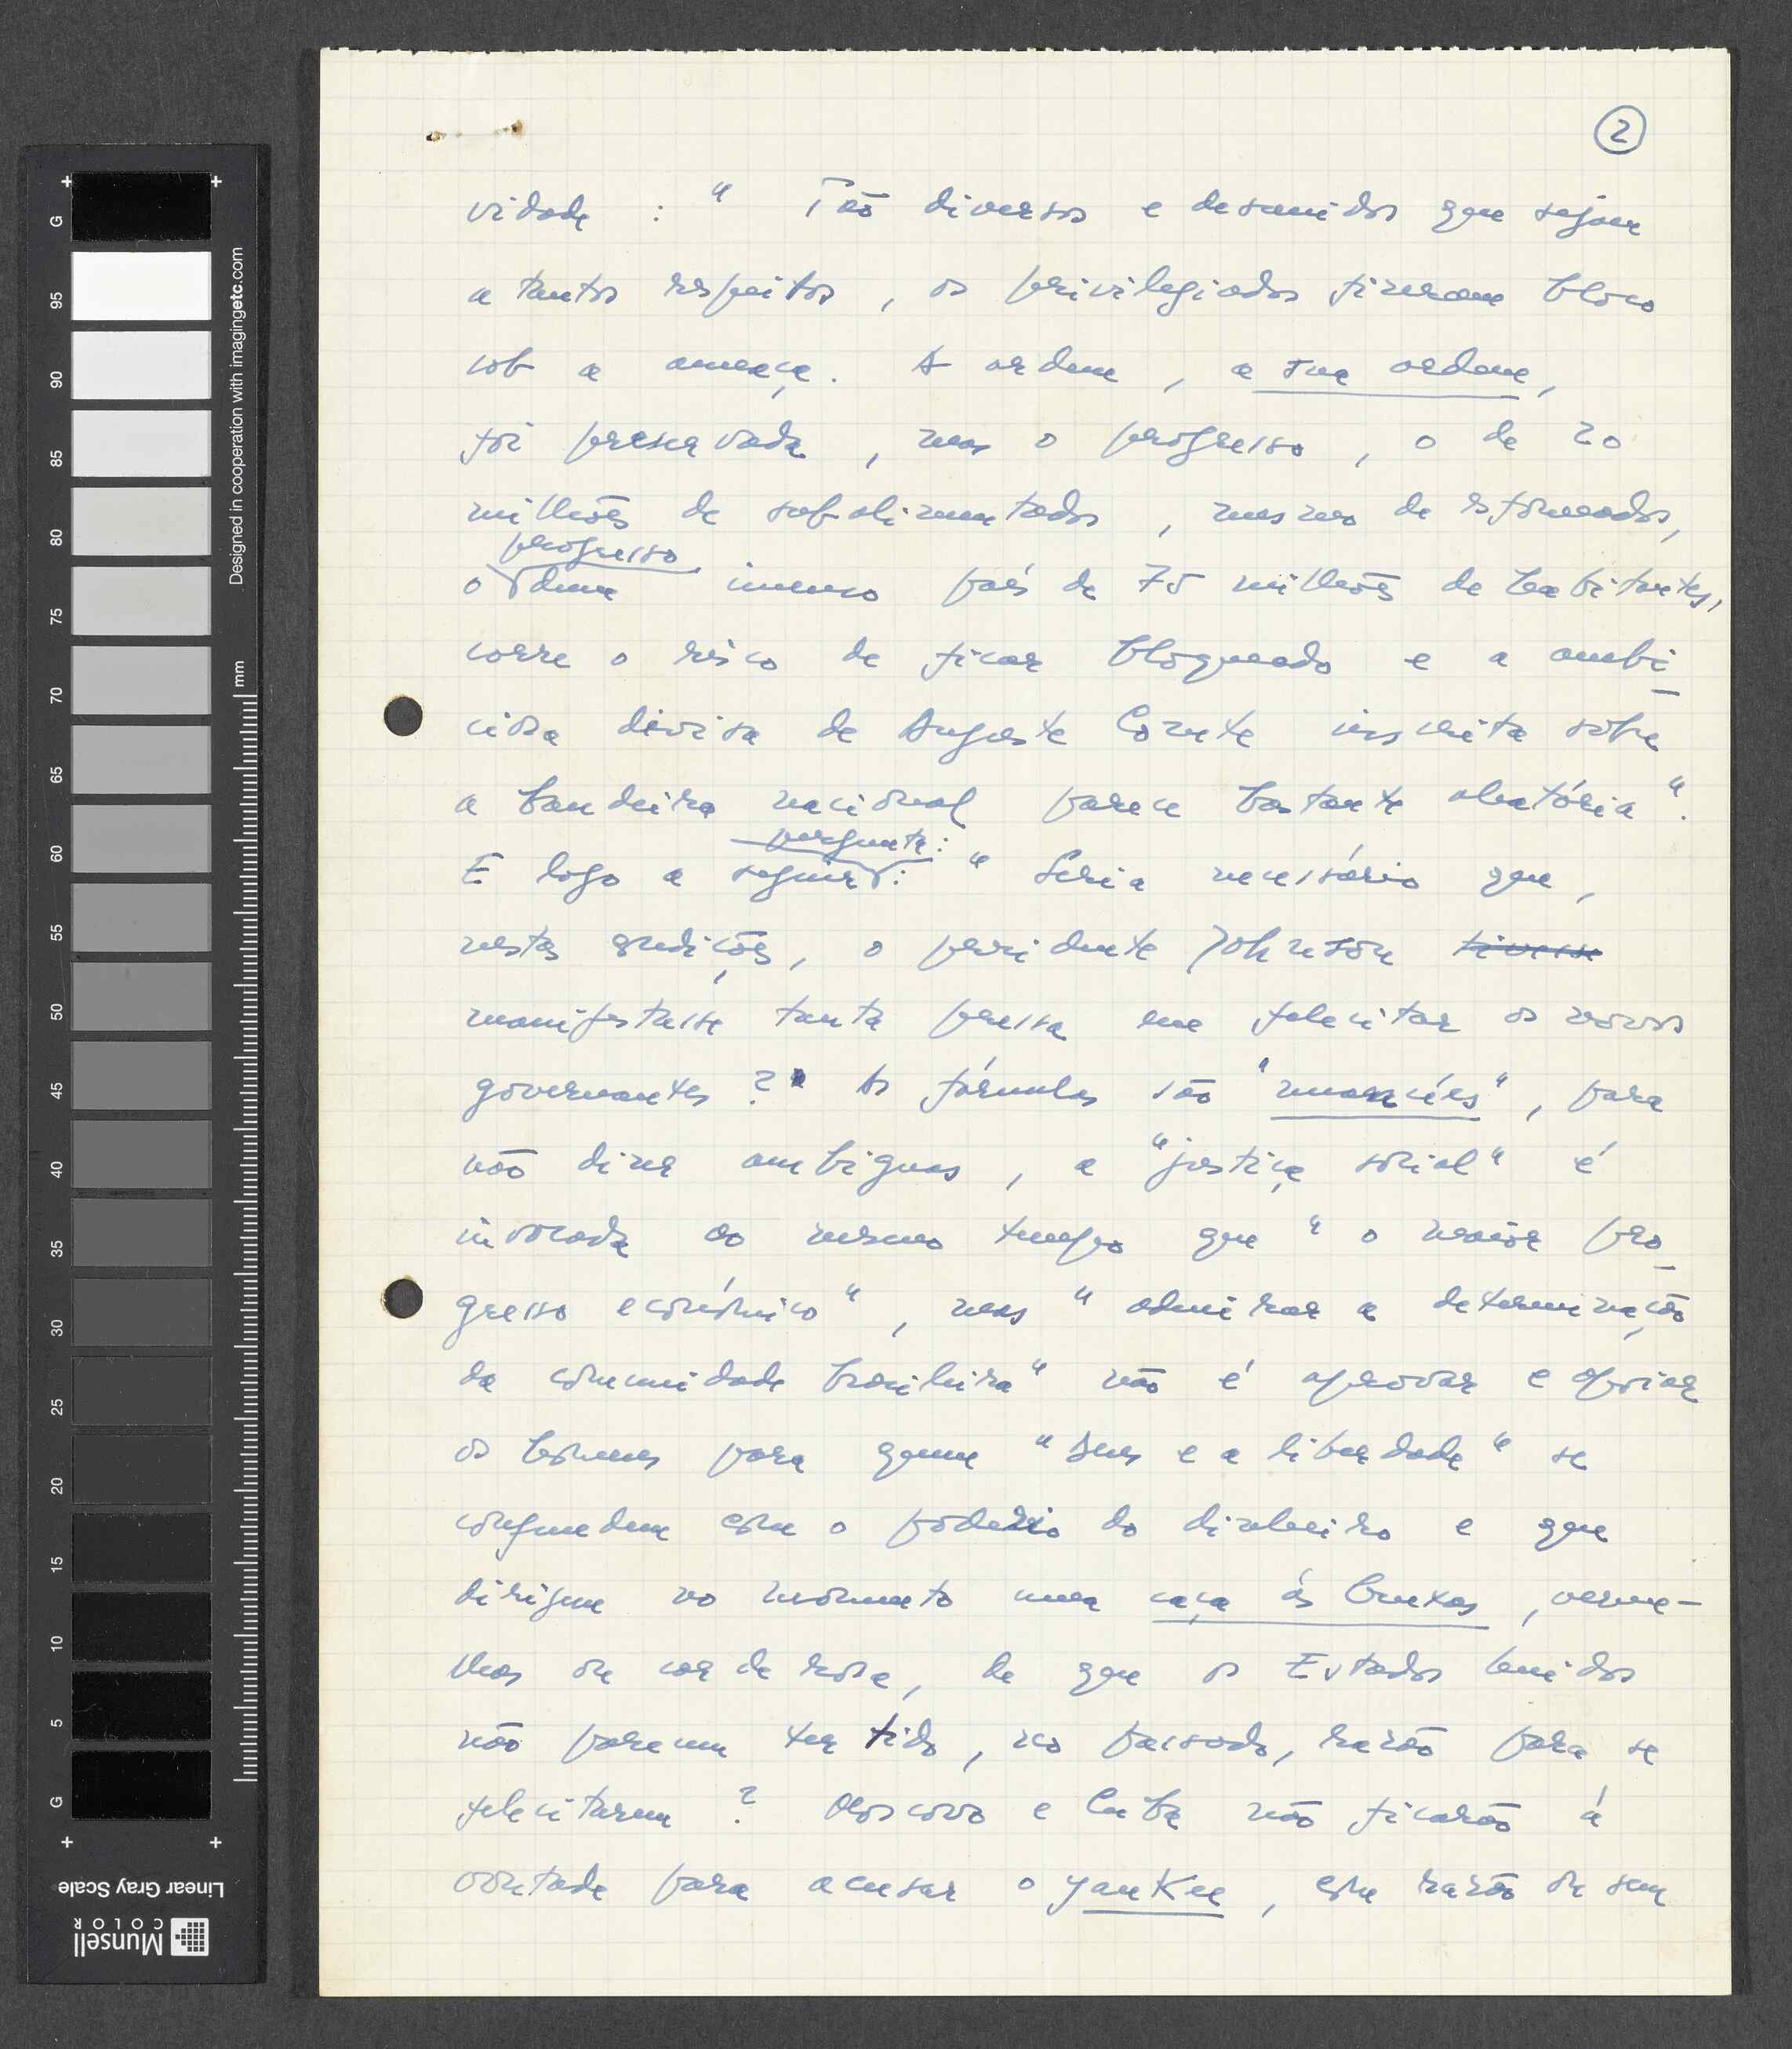 2
vidade : " Tão diversos e desunidos que sejam
a tantos respeitos, os privilegiados fizeram bloco
sob a ameaça. A ordem, a sua ordem,
foi preservada, mas o progresso, o de 20
milhões de subalimentados, mesmo de esfomeados,
progresso
o dum imenso país de 75 milhões de habitantes,
corre o risco de ficar bloqueado e a ambi-
ciosa divisa de Auguste Comte inscrita sobre
a bandeira nacional parece bastante aleatória".
pergunta:
E logo a seguir: " Seria necessário que,
nestas condições, o presidente Johnson tivesse
manifestasse tanta pressa em felicitar os novos
governantes? As fórmulas são "nuancées", para
não dizer ambiguas, a "justiça social" é
invocada ao mesmo tempo que " o maior pro-
gresso económico", mas " admirar a determinação
da comunidade brasileira" não é aprovar e apoiar
os homens para quem " Deus e a liberdade" se
confundem com o poderio do dinheiro e que
dirigem no momento uma caça às bruxas, verme-
lhas ou cor de rosa, de que os Estados Unidos
não parecem ter tido, no passado, razão para se
felicitarem? Moscovo e Cuba não ficarão à
vontade para acusar o yankee, com razão ou sem
G
95
90
85
80
75
70
65
60
55
50
45
40
35
30
25
20
15
10
5
G
mm
Designed in cooperation with imagingetc.com
Linear Gray Scale
Munsell
COLOR